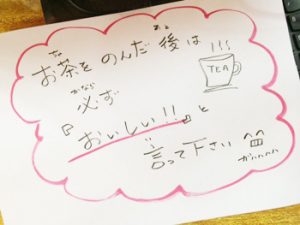 お茶をのんだ後は
必ず
『おいしい!!』と
言って下さい
TEA